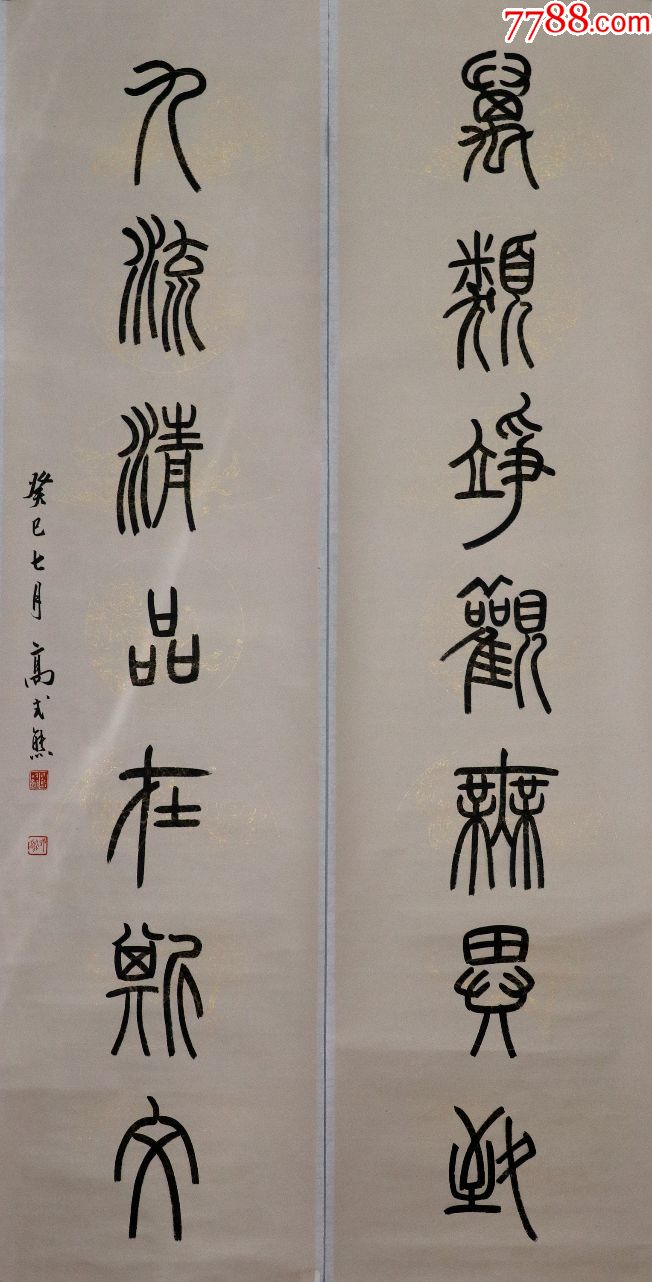 7788.com
萬類竫觀無異致
九流清品在斯文
癸巳七月高式熊